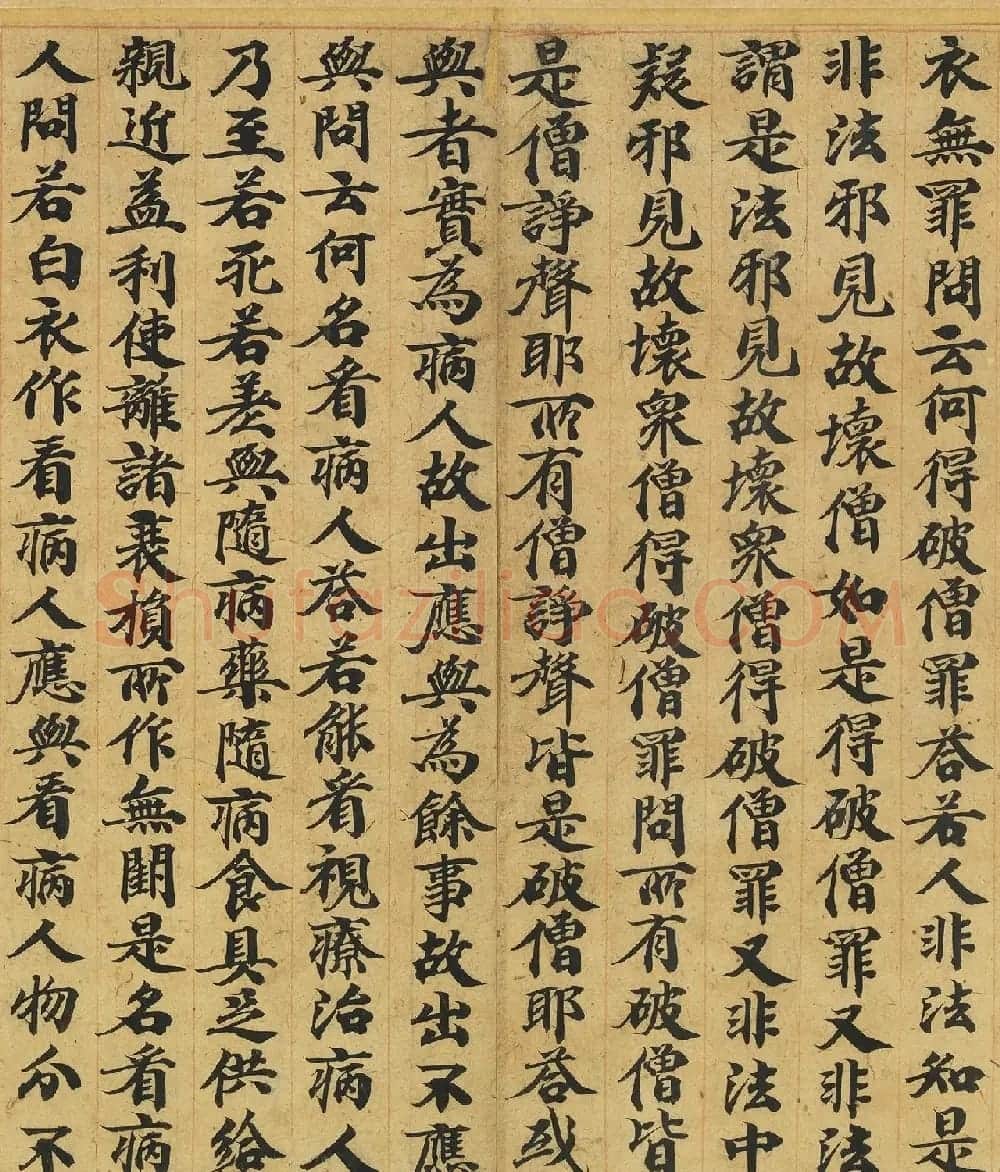 衣無罪問云何得破僧罪荅若人非法知是
非法邪見故壞僧如是得破僧罪又非法
謂是法邪見故壞衆僧得破僧罪又非法中
疑邪見故壞衆僧得破僧罪問所有破僧皆
是僧諍聲耶所有僧諍聲皆是破僧耶荅或
與者實為病人故出應與為餘事故出不應
與問云何名看病人荅若能看視療治病人
乃至若死若差與隨病藥隨病食具足供給
親近益利使離諸衰損所作無閞是名看病
人問若白衣作看病人應與看病人物分不
Shufaziliao.COM